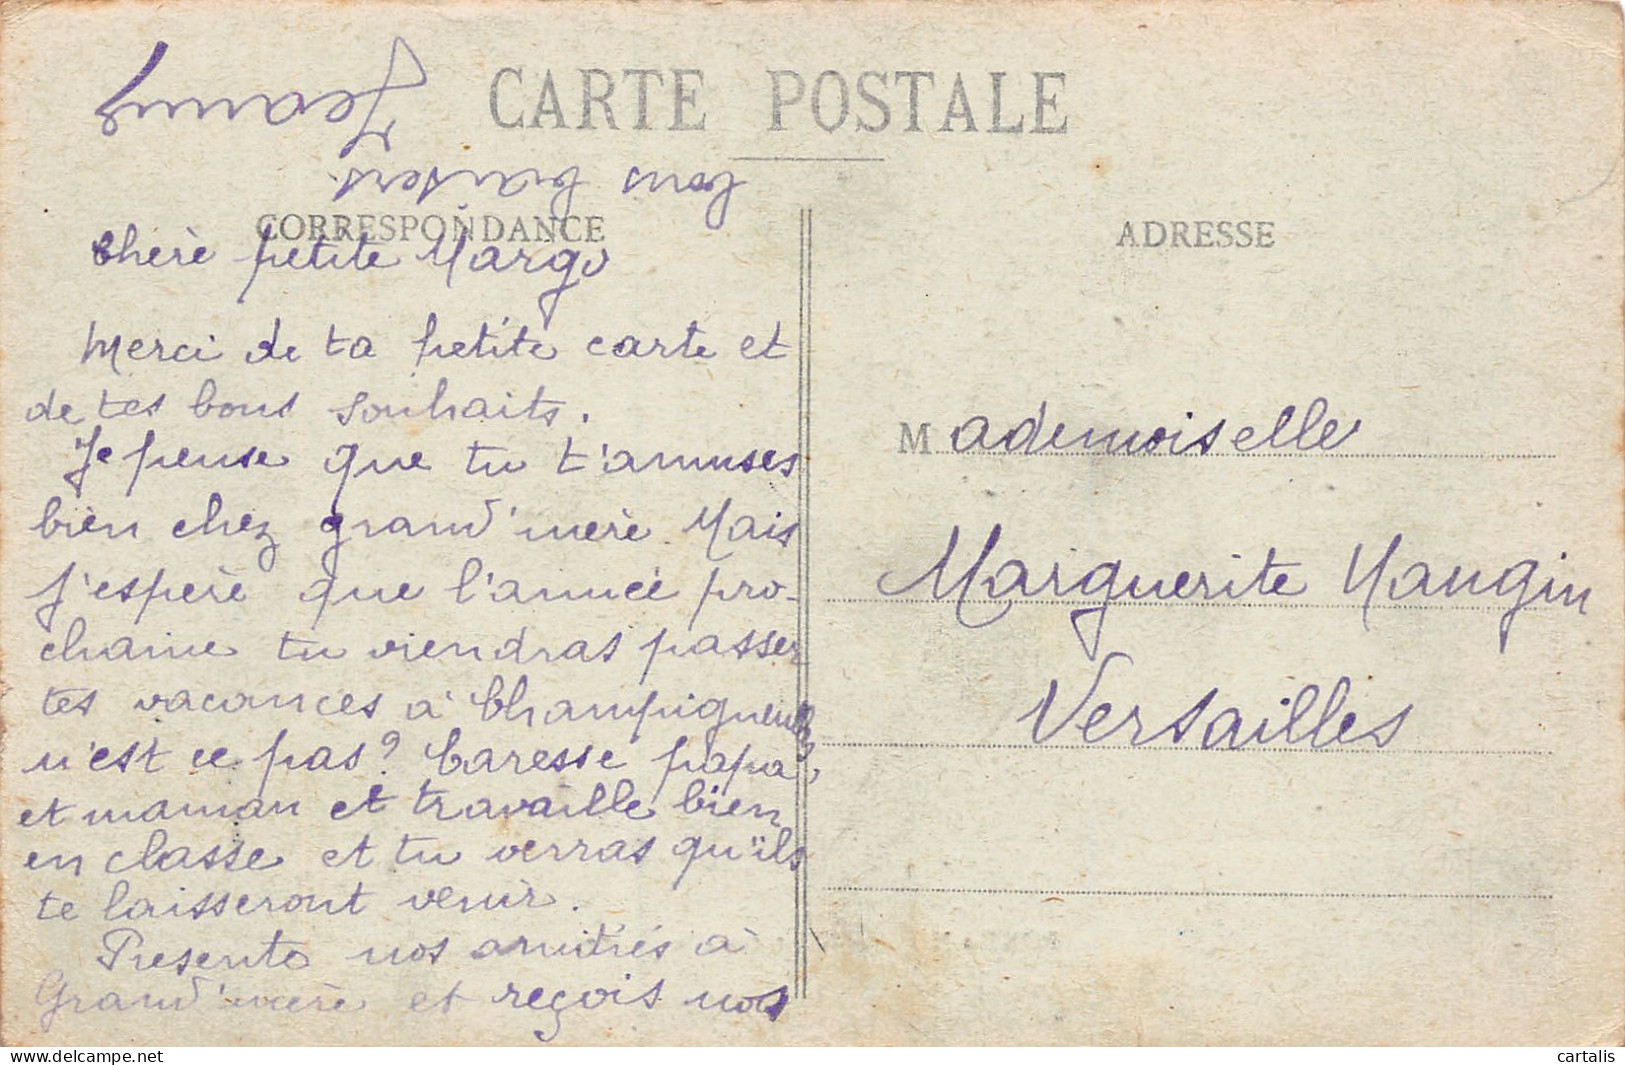 CARTE POSTALE
CORRESPONDANCE
Chère petite Margo
Merci de ta petite carte et
de tes bons souhaits.
Je pense que tu t'amuses
bien chez grand'mère. Mais
j'espère que l'année pro-
chaine tu viendras passer
tes vacances à Champigneulles
n'est ce pas? Caresse papa,
et maman et travaille bien
en classe et tu verras qu'ils
te laisseront venir.
Présente nos amitiés à
Grand'mère et reçois nos
bons baisers
Jeanny
ADRESSE
Mademoiselle
Marguerite Mangin
Versailles
delcampe.net
cartalis